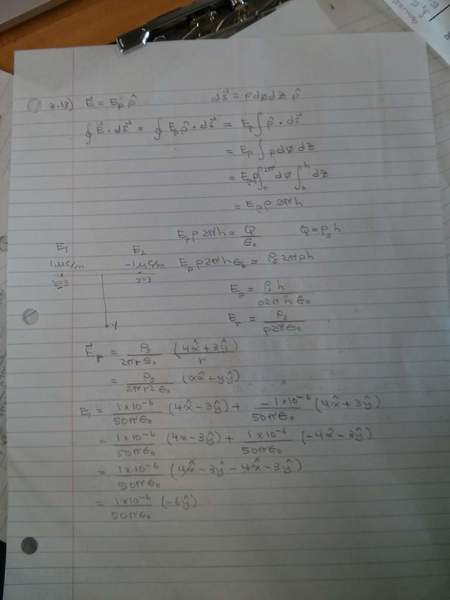 E⃗ = Eρ ρ̂    ds⃗ = ρdφdz ρ̂
∮E⃗·ds⃗ = ∮Eρ ρ̂·ds⃗ = Eρ∫ρ̂·ds⃗
= Eρ∫ρdφdz
= Eρρ∫₀^2π dφ ∫₀^h dz
= Eρρ2πh
Eρρ2πh = Q/ε₀    Q=ρₗh
E₁    E₂
1μC/m    -1μC/m    Eρρ2πhε₀ =
y=3
-4
Eρ = ρₗh/ρ2πhε₀
Eρ = ρₗ/ρ2πε₀
E⃗ρ = ρₗ/2πrε₀ (4x̂+3ŷ)/r
= ρₗ/2πr²ε₀ (xx̂+yŷ)
E = 1×10⁻⁶/50πε₀ (4x̂-3ŷ) + -1×10⁻⁶/50πε₀ (4x̂+3ŷ)
= 1×10⁻⁶/50πε₀ (4x-3ŷ) + 1×10⁻⁶/50πε₀ (-4x̂-3ŷ)
= 1×10⁻⁶/50πε₀ (4x̂-3ŷ-4x̂-3ŷ)
= 1×10⁻⁶/50πε₀ (-6ŷ)